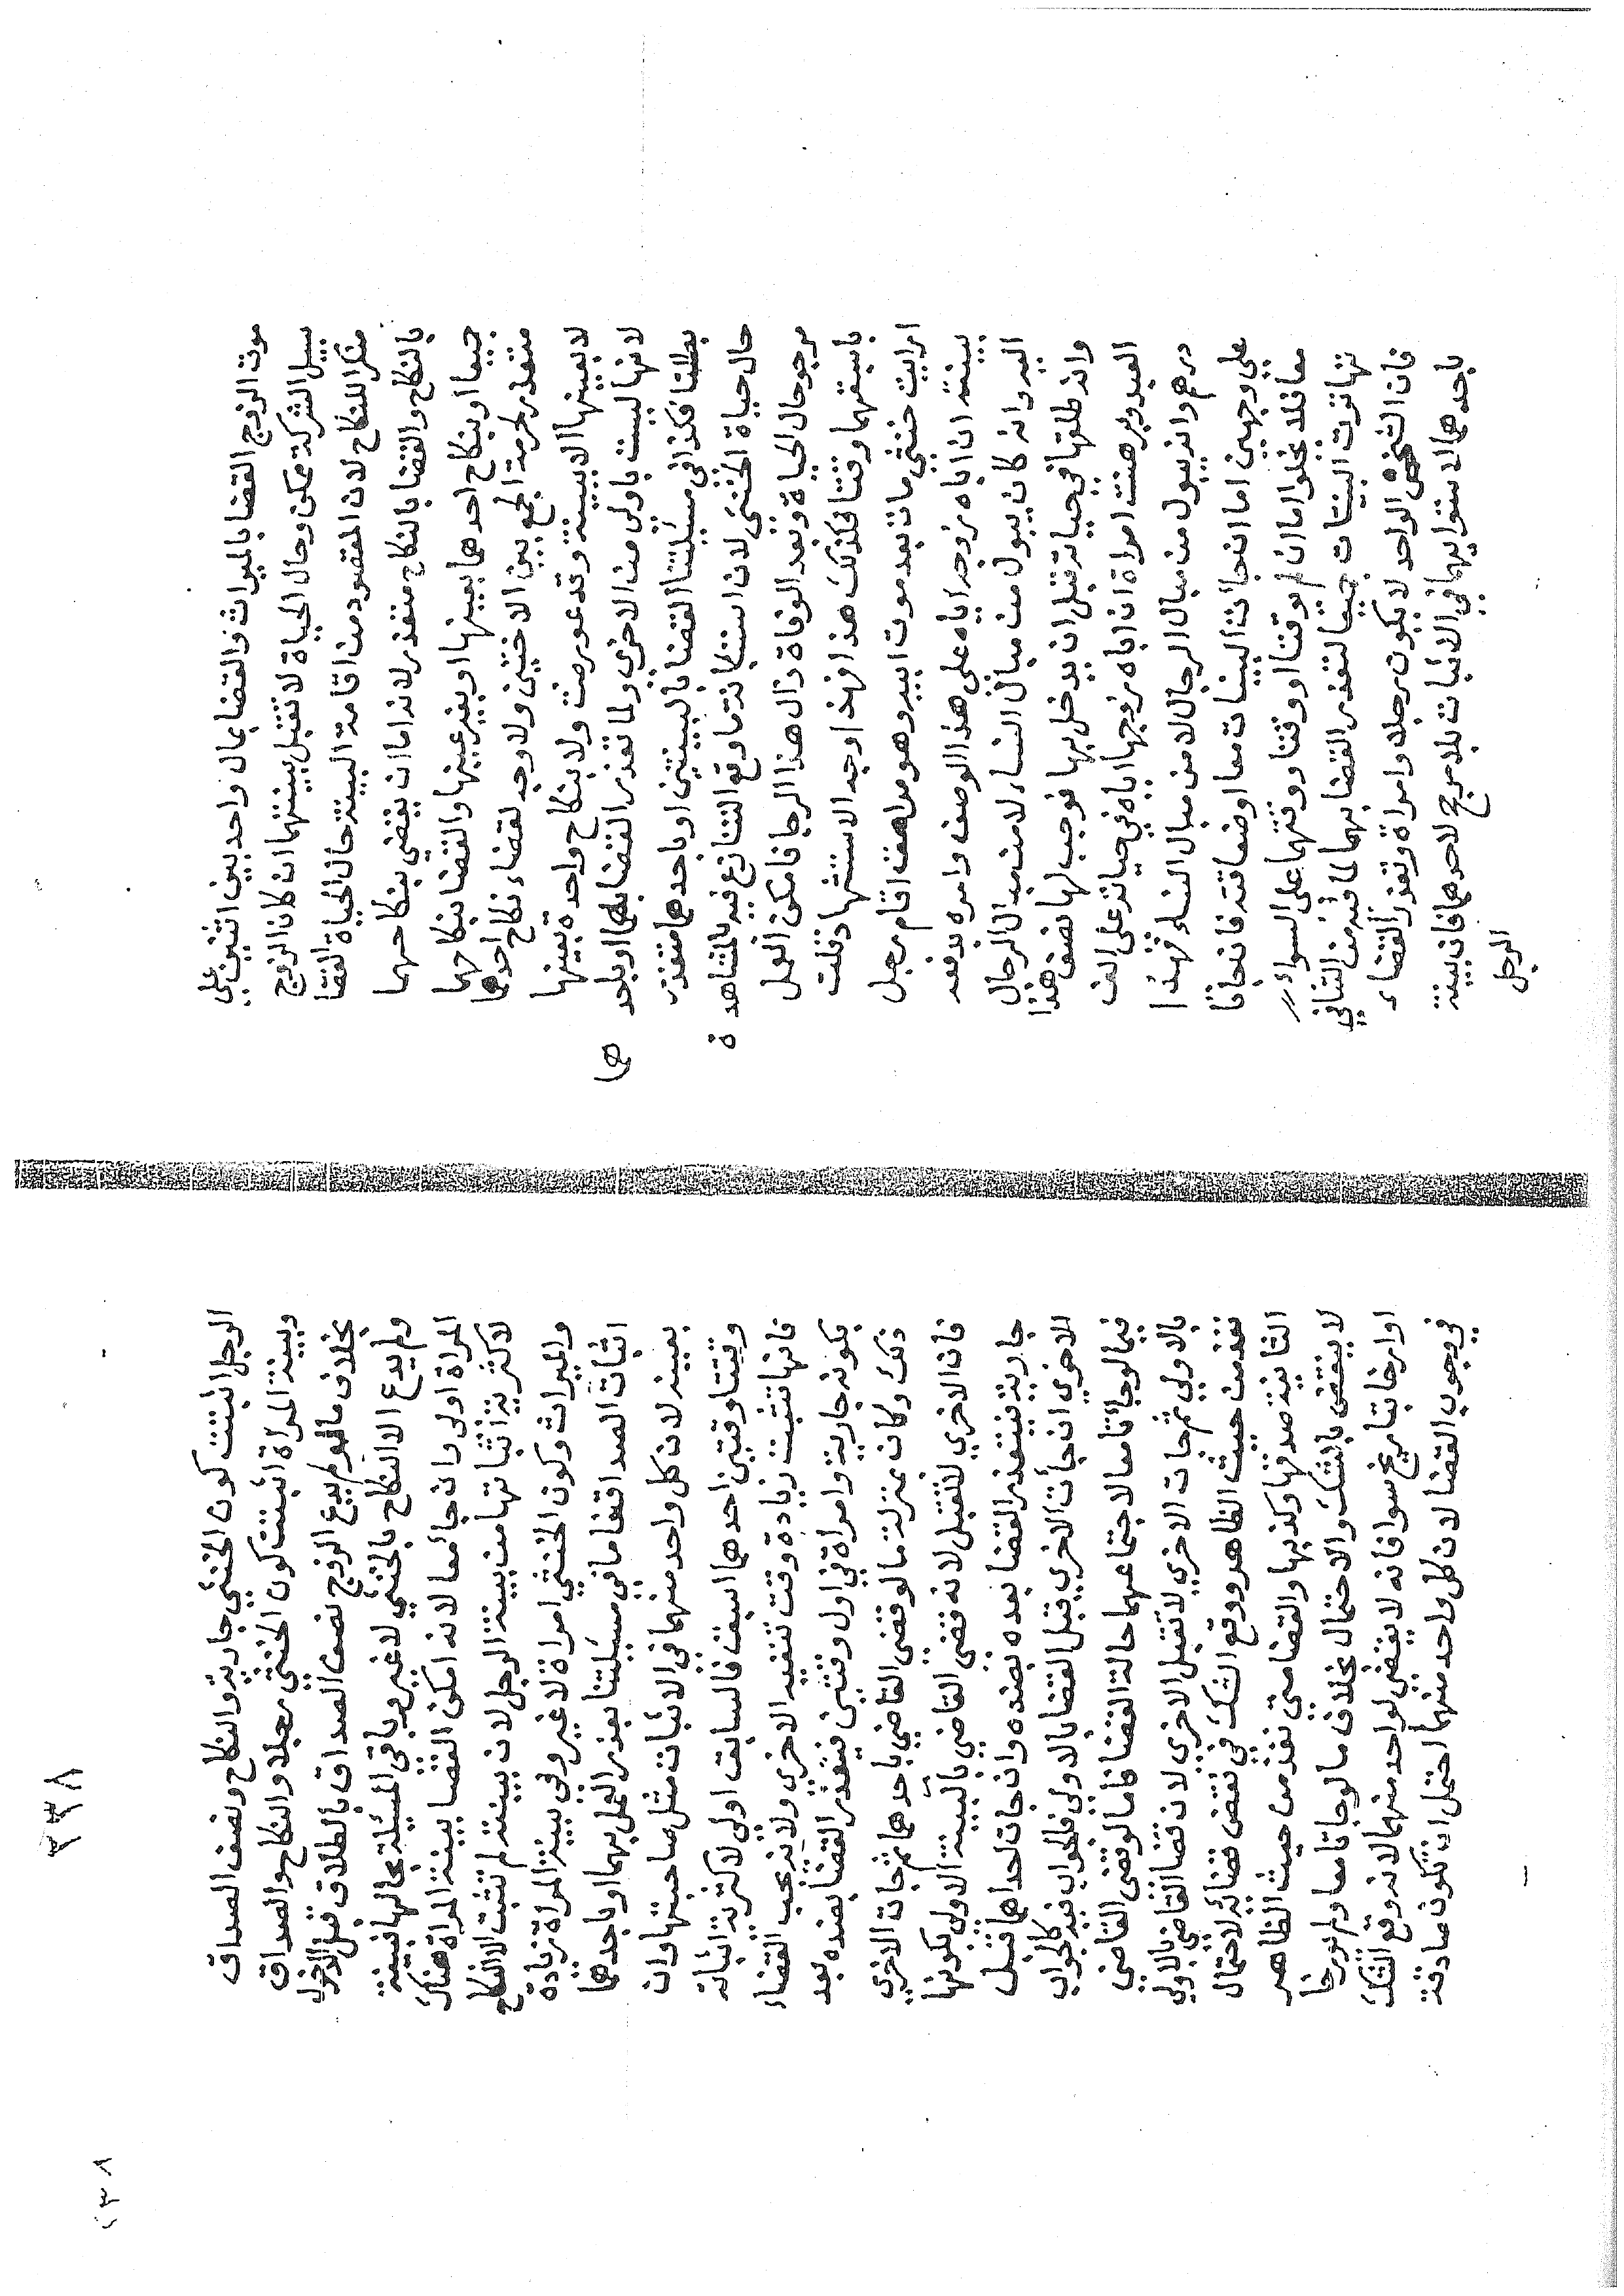 موت الزوج القضا بالميراث والقضا بمال واحد بين اثنين علي
سبيل الشركة ممكن وحال الحياة لا تقبل بينتهما ان كان الزوج
منكرا للنكاح لان المقصود من اقامة البينة حال الحياة القضا
بالنكاح والقضا بالنكاح متعذر لانه اما ان يقضي بنكاحهما
جميعا او بنكاح احدهما بعينها او بغير عينها والقضا بنكاحهما
متعذر لحرمة الجمع بين الاختين ولا وجه لقضاء نكاح احدهما
لا بعينها الا ببينة وقد عورضت ولا بنكاح واحدة بعينها
لانها ليست باولى من الاخرى ولما تعذر القضا بهما او باحد
هما
بطلتا فكذا في مسئلتنا القضا بالبينتين او باحدهما متعذر
حال حياة الخنثى لان استبانة ما وقع التنازع فيه بالمشاهدة
مرجو حال الحياة وبعد الوفاة زال هذا الرجا فامكن العمل
باسبقهما وقتا فكذلك هذا فهذا وجه الاستشهاد قلت
ارايت خنثي مات بعد موت ابيه وهو مراهق اقام رجل
ببينة ان اباه زوجه اياه على هذا الوصف وامره بدفعه
اليه وانه كان يبول من مبال النساء لا من مبال الرجال
وانه طلقها في حياته قبل ان يدخل بها فوجب لها نصف هذا
العبد وبرهنت امراة ان اباه زوجها اياه في حياته على الف
درهم وانه يبول من مبال الرجال لا من مبال النساء فهذا
علي وجهين اما ان جات البينات معا او متعاقبة فان جاتا
معا فلا يخلوا اما ان لم يوقتا او وقتا ووقتهما على السواء
تهاترت البينات جميعا لتعذر القضا بهما لما فيه من التنافي
فان الشخص الواحد لا يكون رجلا وامراة وتعذر القضاء
باحدهما لاستوايهما في الاثبات بلا مرجح لاحدهما فان بينة
الرجل
الرجل اثبتت كون الخنثي جارية والنكاح ونصف الصداق
وبينة المراة اثبتت كون الخنثي رجلا والنكاح والصداق
بخلاف ما لو لم يدع الزوج نصف الصداق بالطلاق قبل الدخول
ولم يدع الا النكاح بالخنثي لا غير وباقي المسئلة بحالها فبينة
المراة اولى وان جاتا معا لانه امكن القضا ببينة المراة هناك
لاكثرية اثباتها من بينة الرجل لان بينته لم تثبت الا النكاح
والميراث وكون الخنثي امراة لا غير وفي بينة المراة زيادة
اثبات الصداق فاما في مسئلتنا بعذر العمل بهما او باحدهما
بعينه لان كل واحد منهما في الاثبات مثل صاحبتها وان
وقتتا وقتين احدهما اسبق فالسابق اولى لاكثرية اثباته
فانها تثبت زيادة وقت تنفيد الاخرى ولا يجب القضاء
بكونه جارية وامراة في اول وقتين فيتعذر القضا بضده بعد
ذلك وكان بمنزلة ما لو قضى القاضي باحدهما ثم جات الاخرى
فان الاخري لا تقبل لانه قضي القاضي بالبينة الاولى بكونها
جارية فيتعذر القضا بعده بضده وان جات احداهما قبل
الاخري ان جات الاخري قبل القضا بالاولى فالجواب فيه كالجواب
فيما لو جاتا معا لاجتماعهما حالة القضا فاما لو قضى القاضي
بالاولى ثم جات الاخري لا تقبل الاخري لان قضا القاضي بالاولى
تقدمت حيث الظاهر ووقع الشك في نقض قضائه لاحتمال
الثانية صدقها وكذبها والقضا متي نفذ من حيث الظاهر
لا ينقض بالشك والاحتمال بخلاف ما لو جاتا معا ولم يورخا
او ارخا بتاريخ سوا فانه لا يقضي لواحد منهما لانه وقع الشك
في وجوب القضا لان كل واحد منهما احتمل ان تكون صادقة
٢٣٨
٢٣٨